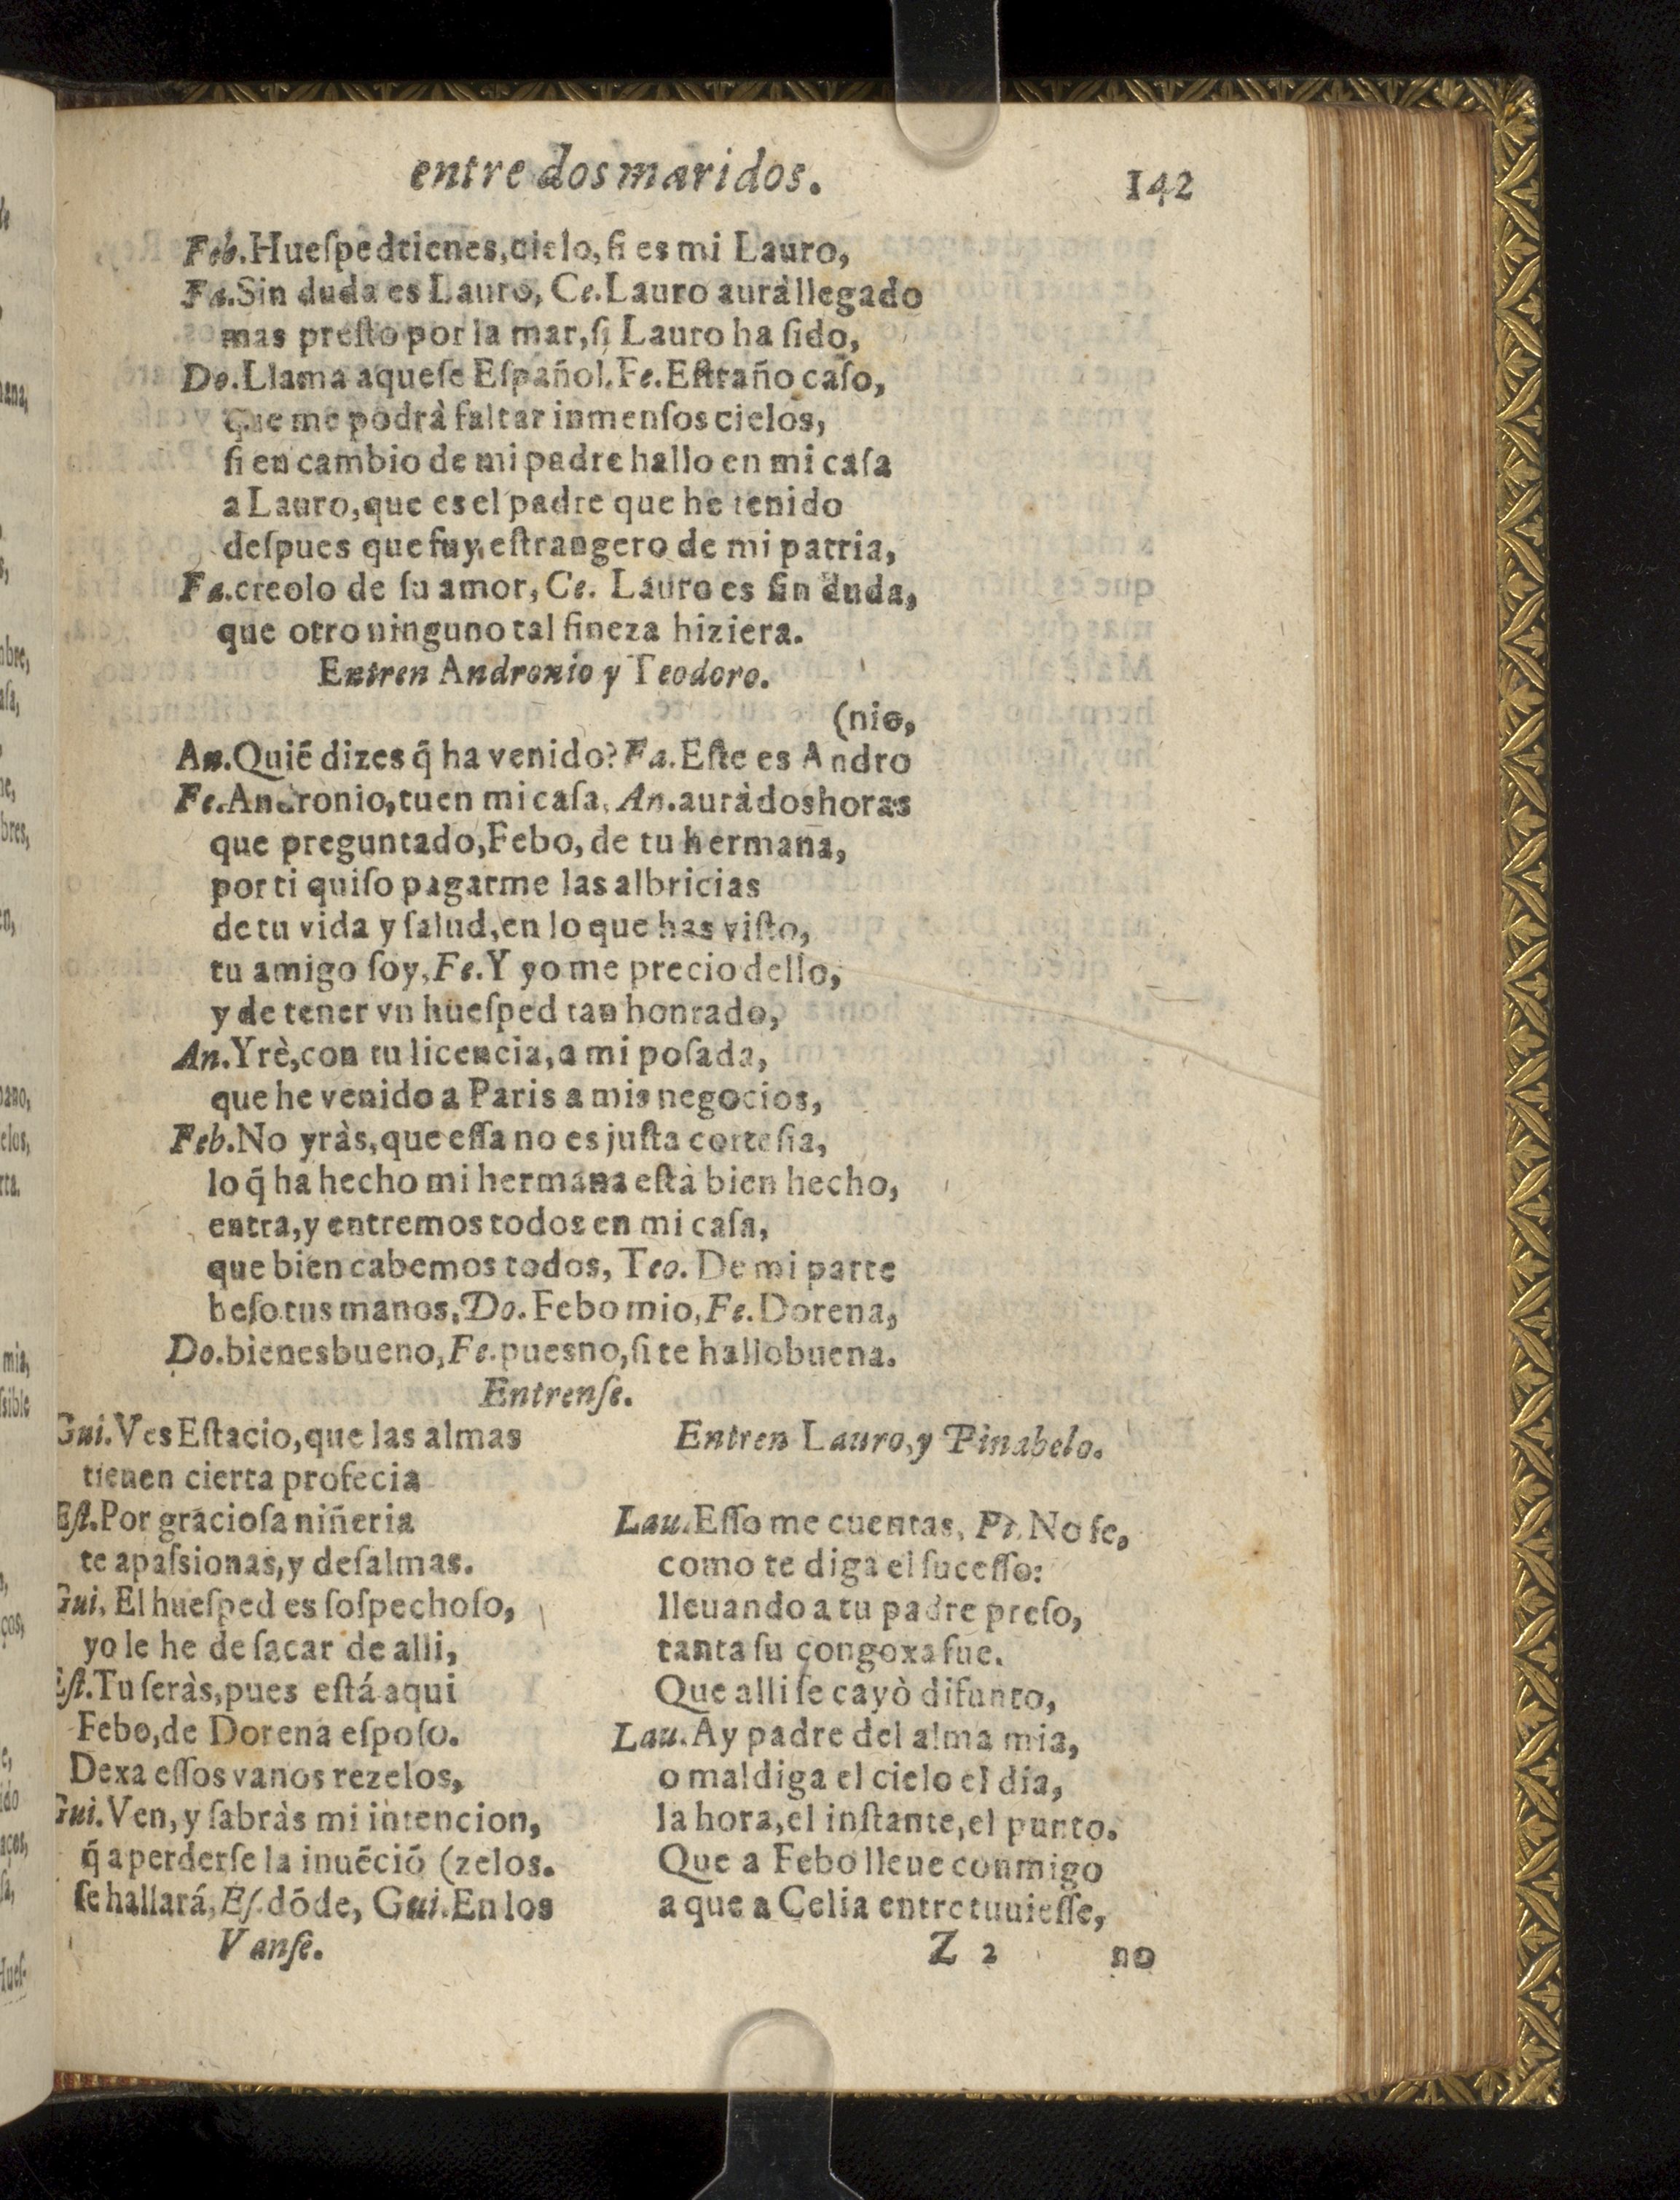 entre dos maridos.
142
Feb.Hueſpedtienes,cielo,ſi es mi Lauro,
Fa.Sin duda es Lauro, Ce.Lauro auràllegado
mas preſto por la mar,ſi Lauro ha ſido,
Do.Llama aqueſe Eſpañol.Fe.Eſtraño caſo,
que me podrà faltar inmenſos cielos,
ſi en cambio de mi padre hallo en mi caſa
a Lauro,que es el padre que he tenido
deſpues que fuy eſtrangero de mi patria,
Fa.creolo de ſu amor, Ce. Lauro es ſin duda,
que otro ninguno tal fineza hiziera.
Entren Andronio y Teodoro.
(nio,
An.Quiẽ dizes q̃ ha venido? Fa.Eſte es Andro
Fe.Andronio,tu en mi caſa, An.aurà dos horas
que preguntado,Febo, de tu hermana,
por ti quiſo pagarme las albricias
de tu vida y ſalud,en lo que has viſto,
tu amigo ſoy,Fe.Y yo me precio dello,
y de tener vn hueſped tan honrado,
An.Yrè,con tu licencia,a mi poſada,
que he venido a Paris a mis negocios,
Feb.No yràs,que eſſa no es juſta corteſia,
lo q̃ ha hecho mi hermana eſtà bien hecho,
entra,y entremos todos en mi caſa,
que bien cabemos todos, Teo. De mi parte
beſo tus manos,Do. Febo mio,Fe.Dorena,
Do.bienesbueno,Fe.puesno,ſi te hallo buena.
Entrenſe.
Gui.Ves Eſtacio,que las almas
tienen cierta profecia
Eſt.Por gracioſa niñeria
te apaſsionas,y deſalmas.
Gui, El hueſped es ſoſpechoſo,
yo le he de ſacar de alli,
Eſt.Tu ſeràs,pues eſtá aqui
Febo,de Dorena eſpoſo.
Dexa eſſos vanos rezelos,
Gui.Ven,y ſabràs mi intencion,
q̃ a perderſe la inuẽciõ (zelos.
ſe hallará,Eſ.dõde, Gui.En los
Vanſe.
Entren Lauro,y Pinabelo.
Lau.Eſſo me cuentas, Pi.No ſe,
como te diga el ſuceſſo:
lleuando a tu padre preſo,
tanta ſu congoxa fue.
Que alli ſe cayò difunto,
Lau.Ay padre del alma mia,
o maldiga el cielo el día,
la hora,el inſtante,el punto.
Que a Febo lleue conmigo
a que a Celia entretuuieſſe,
Z 2
no